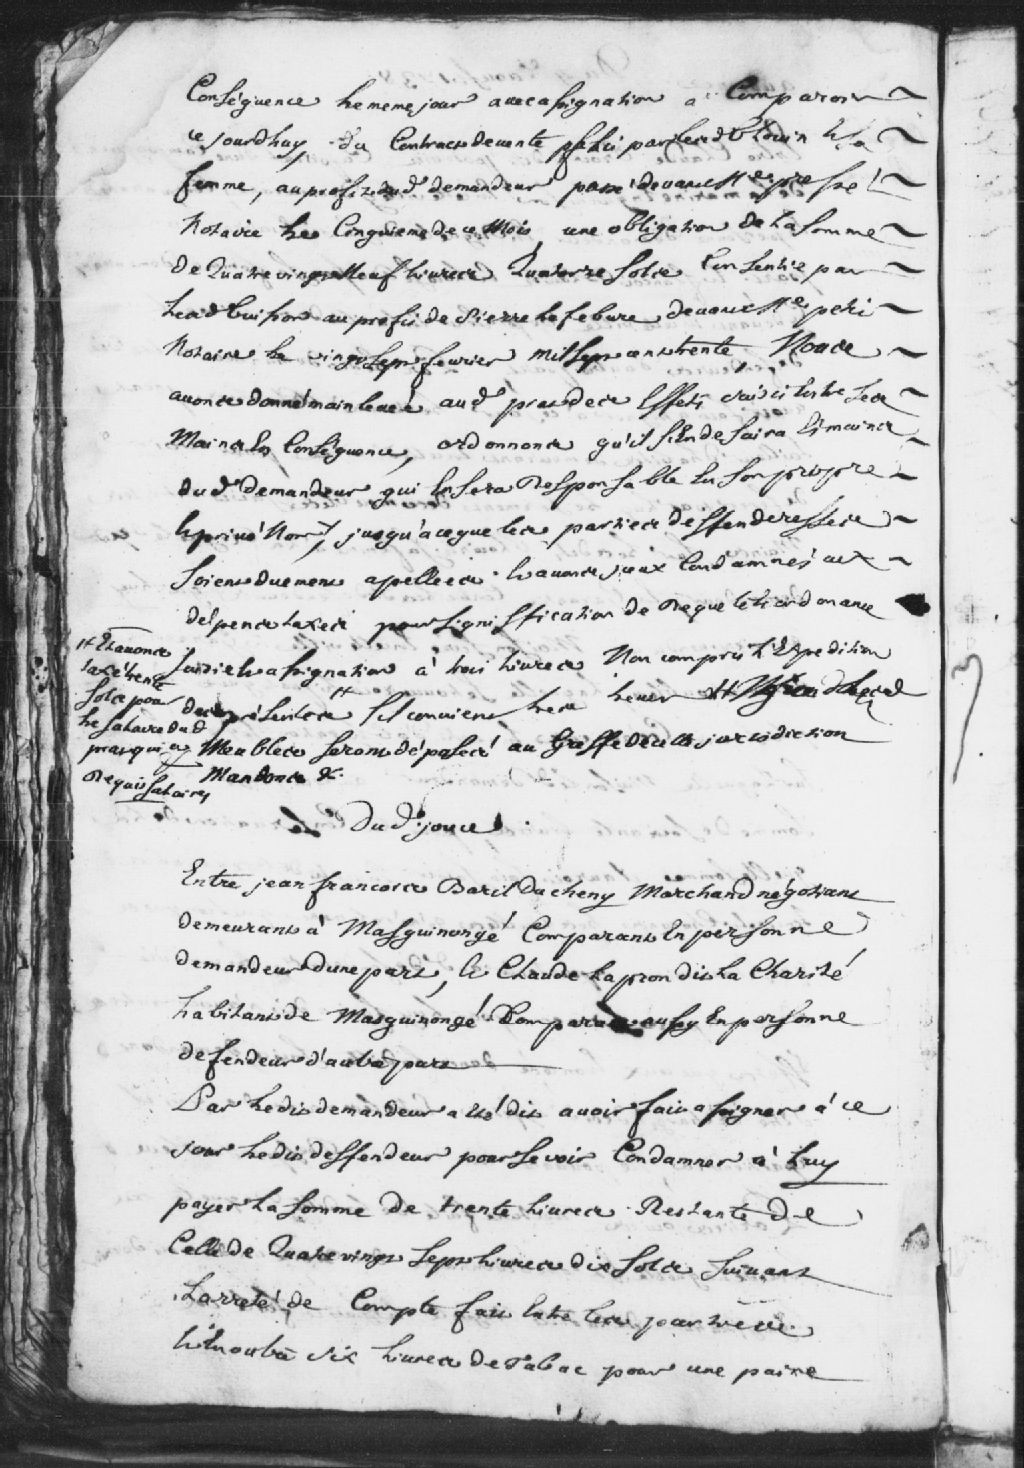 Conséquence le meme jour avec assignation a Comparoir
ce jourdhuy, du Contract de vente fait par led. et sa
femme, au profit dud demandeur passé devant Me
Notaire le Cinquieme de ce Mois, une obligation de La Somme
de Quatre vingt Neuf Livres Quatorze Sols Consentie par
led Buisson au profit de Pierre Lefebure devant Me petit
Notaire le vingt Sept feurier Mil Sept cent trente, Nous
avons donné main levée aud des Effets saisis Entre Ses
Mains En Conséquence, ordonnons qu'il s'En desaisira Es mains
dud demandeur qui En Sera Responsable En Son propre
et privé Nom, jusqu'a ce que les parties deffenderesses
Soient duement apellees et avons yceux Condamnés aux
dépens taxés pour Signiffication de Requete et ordonance
Saisie et assignation à trois Livres Non compris L'Expedition
des présentes # S'il convient les lever ## Lesd
Meubles Seront déposés au Greffe de cette jurisdiction
Mandons &c.
# Et avons
taxé trente
Sols pour
Le Salaire dud
marquis,
Requis Salaires
Dud. jour
Entre jean francois Baril Ducheny Marchand négotiant
demeurant à Masquinongé Comparant En personne
demandeur dune part, et Claude Lapron dit La Charité
habitant de Masquinongé Comparant aussy En personne
defendeur d'autre part
Par Ledit demandeur a été dit avoir fait assigner à ce
jour Ledit deffendeur pour Se voir Condamner à Luy
payer La Somme de trente Livres Restante de
Celle de Quatre vingt Sept Livres dix Sols Suivant
L'arreté de Compte fait Entre Les parties
et En outre Six Livres de Tabac pour une paire